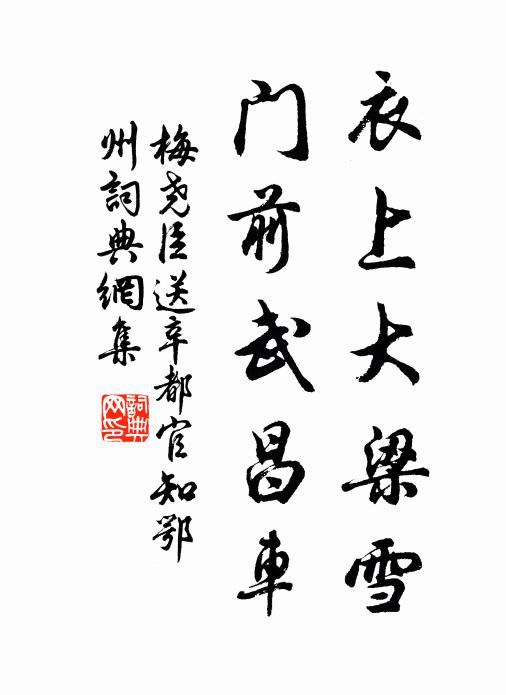 衣上大梁雪
门前武昌車
梅尧臣送辛都官知鄂
州詞典網集
詞典网印